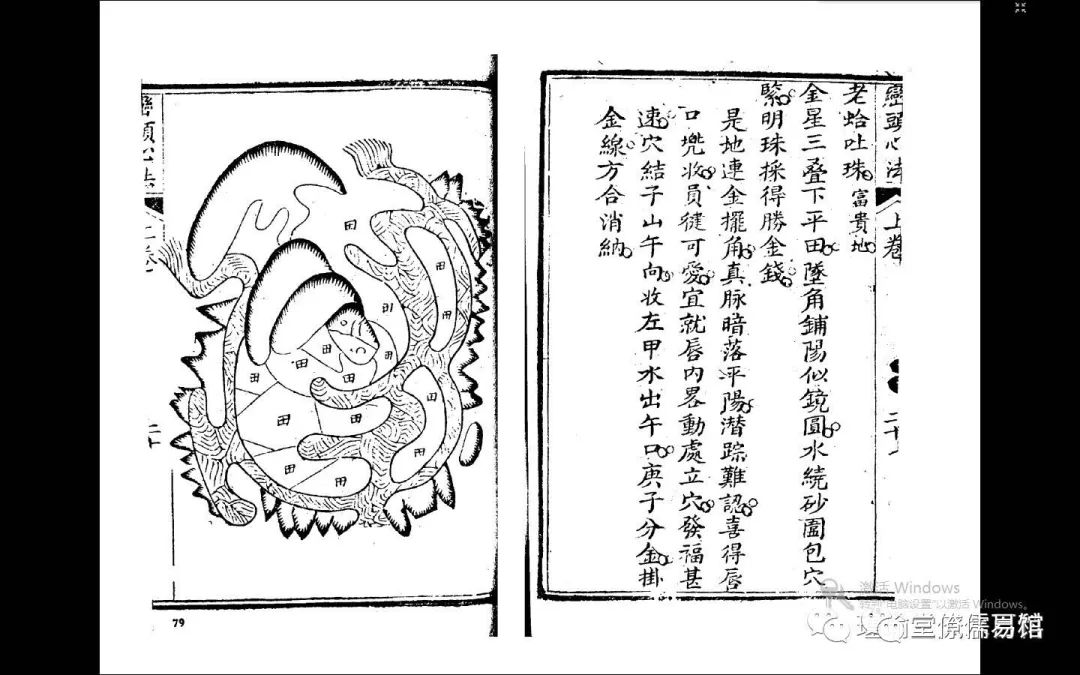 巒頭心法 上卷 二十
老蛤吐珠 富貴地
金星三叠下平田墜角鋪陽似鏡圓水繞砂圍包穴
緊明珠採得勝金錢
是地連金擺角真脉暗落平陽潜踪難認喜得唇
口兠收員徤可愛宜就唇内畧動處立穴發福甚
速穴結子山午向收左甲水出午口庚子分金掛
金線方合消納
巒頭心法
二十
田
田
田
田
田
田
田
田
田
田
田
79
激活 Windows
转到"电脑设置"以激活 Windows。